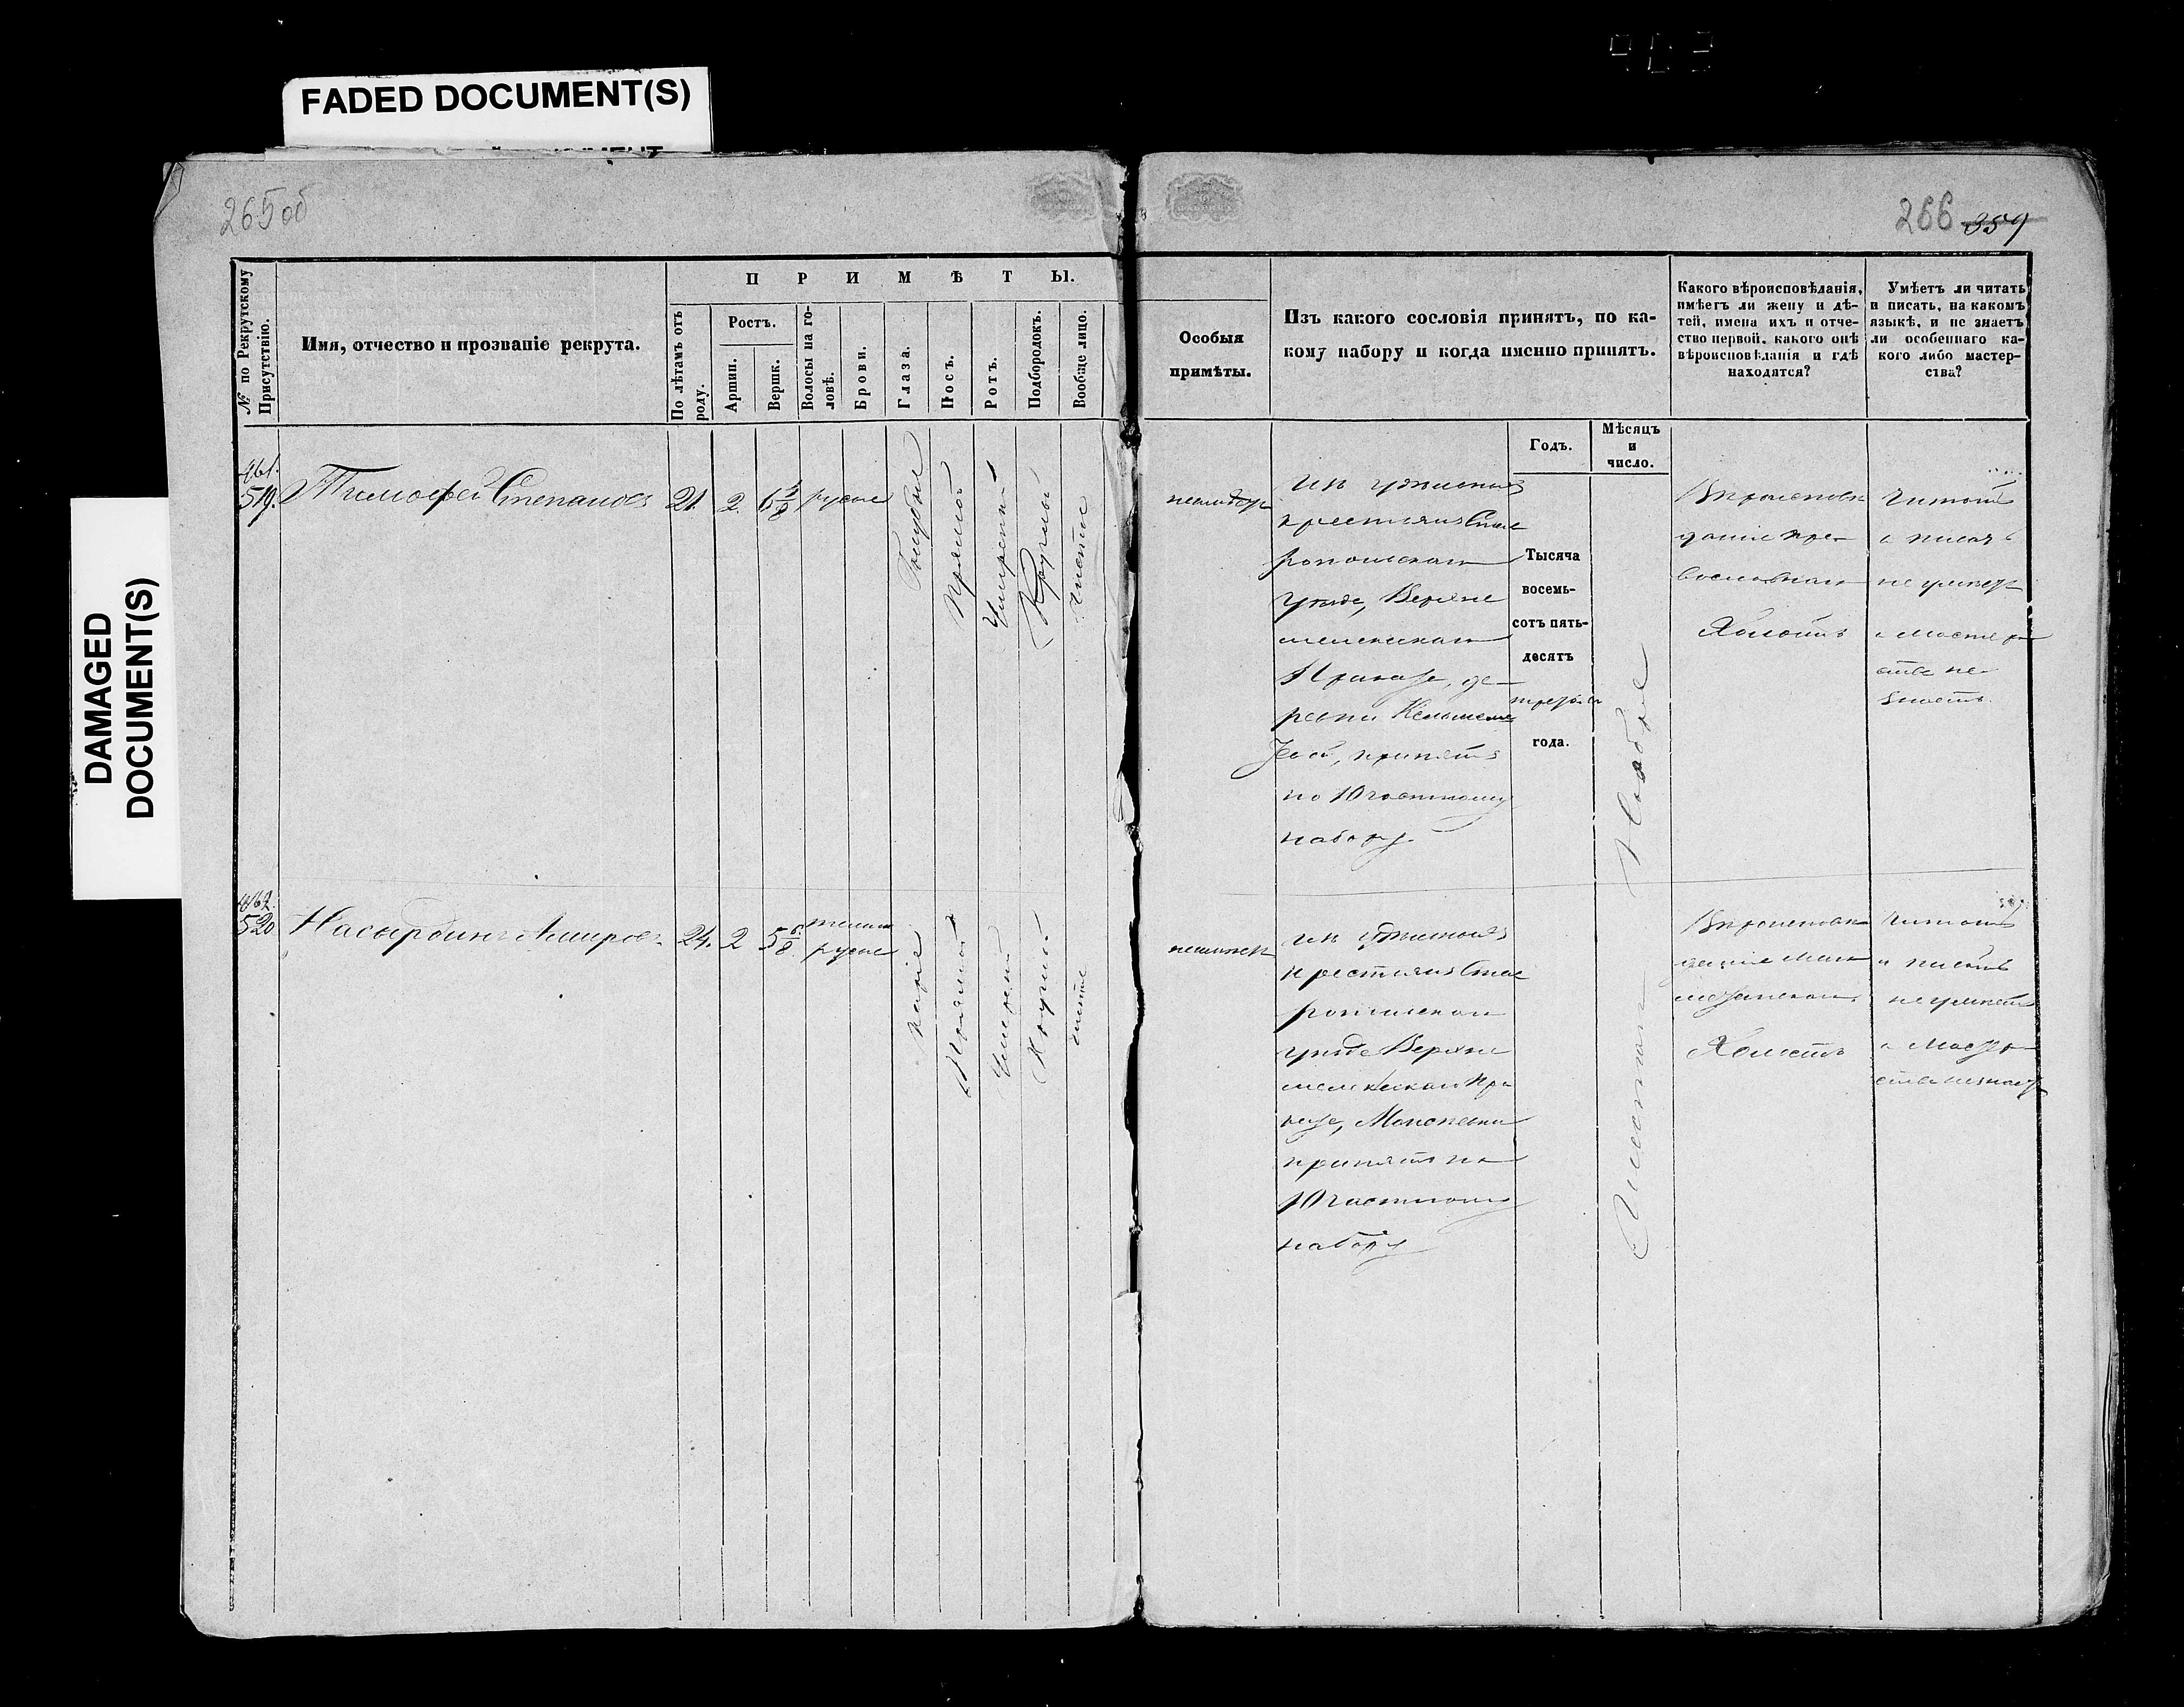 FADED DOCUMENT(S)
DAMAGED
DOCUMENT(S)
265об
266 359
№ по Рекрутскому
Присутствію.
Имя, отчество и прозваніе рекрута.
П Р И М Ѣ Т Ы.
По лѣтамъ отъ
роду.
Ростъ.
Аршин.
Вершк.
Волосы на го-
ловѣ.
Брови.
Глаза.
Носъ.
Ротъ.
Подбородокъ.
Вообще лицо.
Особыя
примѣты.
Изъ какого сословія принятъ, по ка-
кому набору и когда именно принятъ.
Годъ.
Мѣсяцъ
и
число.
Какого вѣроисповѣданія,
имѣетъ ли жену и дѣ-
тей, имена ихъ и отче-
ство первой, какого онѣ
вѣроисповѣданія и гдѣ
находятся?
Умѣетъ ли читать
и писать, на какомъ
языкѣ, и не знаетъ
ли особеннаго ка-
кого либо мастер-
ства?
461.
519.
Тимофей Степановъ
21.
2.
русые
Голубые
Прямой
Умѣренный
Круглый
Чистое
крестьянъ
уѣзда, Верхне
Приказа, де-
ревни
принятъ
по 10 частному
набору.
Тысяча
восемь-
сотъ пять-
десятъ
третьяго
года.
Ноября
Вѣроисповѣ
даніе пра-
вославнаго
Холостъ
Читать
и писать
не умѣетъ
и мастер
ства не
знаетъ.
462.
520
Насырдинъ Амировъ
24.
2
5 6/8
темно
русые
каріе
Прямой
Умѣренный
Круглый
чистое
крестьянъ
уѣзда Верхне
принятъ по
10 частному
набору
Вѣроисповѣ
даніе Маго
метанскаго.
Холостъ
Читать
и писать
не умѣетъ
и Мастер
ства не знаетъ